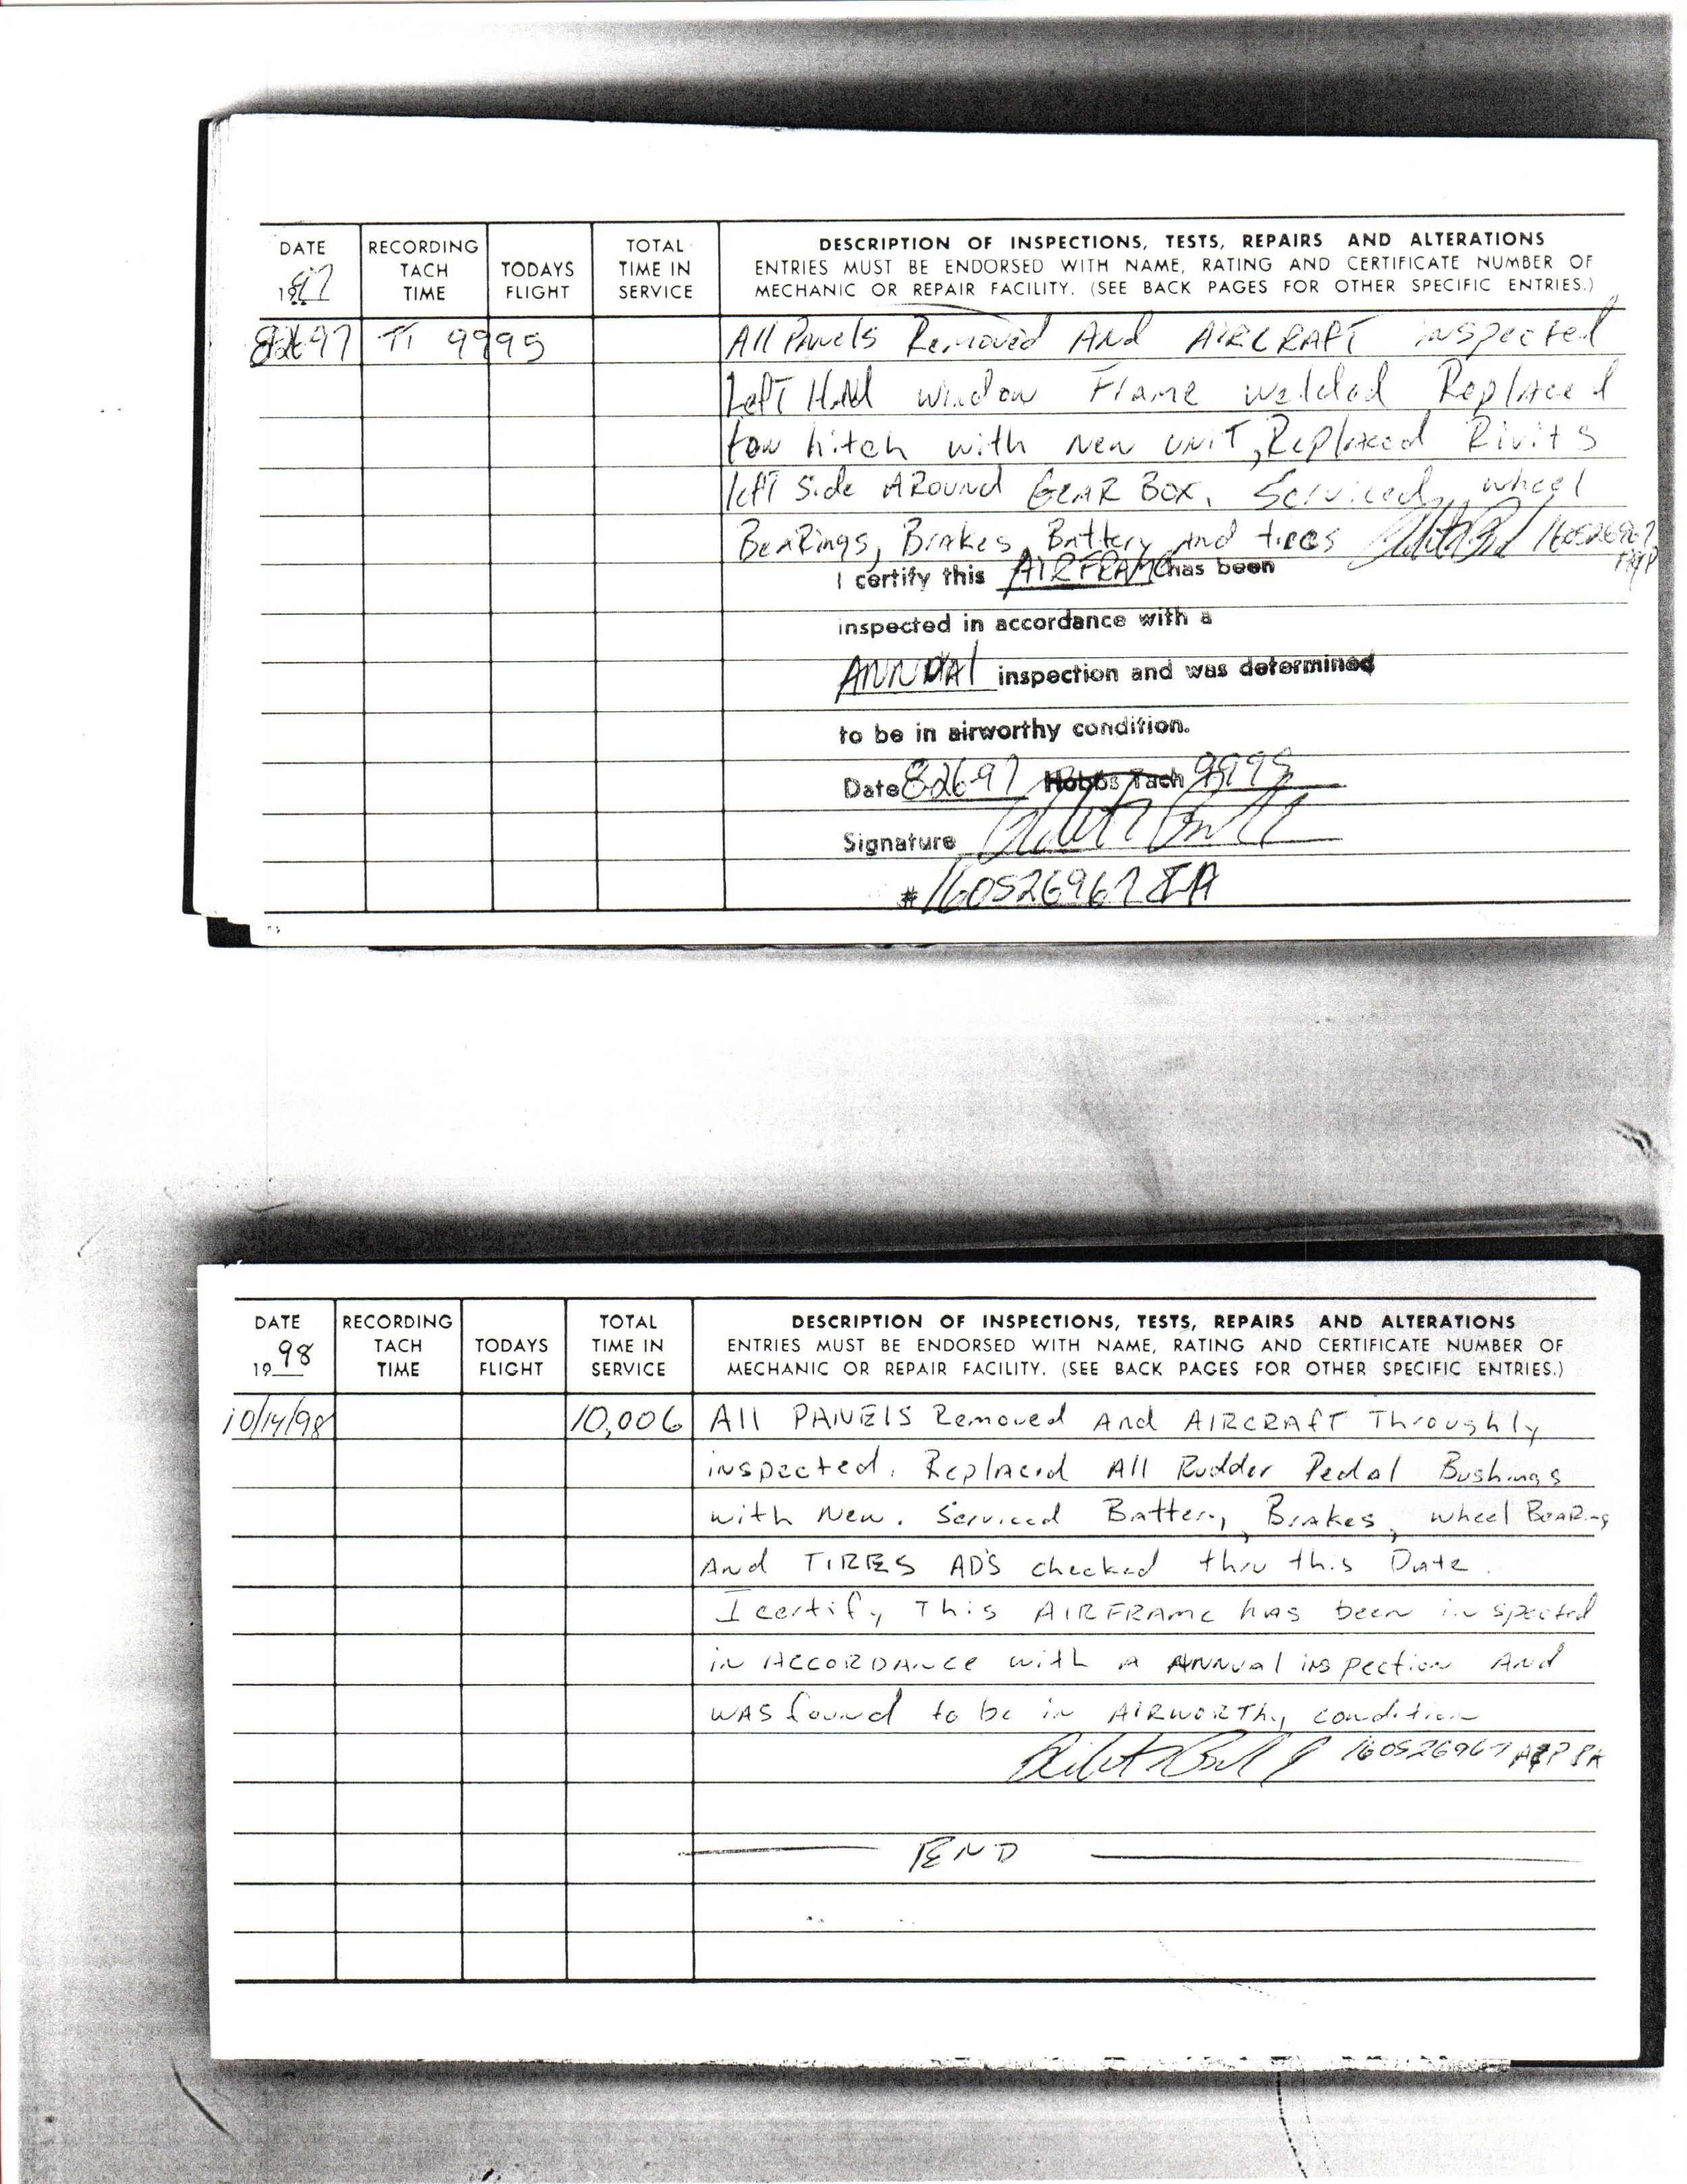 DATE RECORDING TACH TIME TODAYS FLIGHT TOTAL TIME IN SERVICE DESCRIPTION OF INSPECTIONS, TESTS, REPAIRS AND ALTERATIONS
ENTRIES MUST BE ENDORSED WITH NAME, RATING AND CERTIFICATE NUMBER OF
MECHANIC OR REPAIR FACILITY. (SEE BACK PAGES FOR OTHER SPECIFIC ENTRIES.)
1997
82697 TT 9995 All PANels Removed And AIRCRAFT inspected
Left HNd window Frame welded Replaced
tow hitch with New UNIT, Replaced Rivits
left Side ARound GEAR BOX. Serviced wheel
BeARings, Brakes, Battery And tires 160526967
A&P
I certify this AIRFRAME has been
inspected in accordance with a
ANNUAl inspection and was determined
to be in airworthy condition.
Date 82697 Hobbs Tach 9995
Signature
#160526967 IA
DATE RECORDING TACH TIME TODAYS FLIGHT TOTAL TIME IN SERVICE DESCRIPTION OF INSPECTIONS, TESTS, REPAIRS AND ALTERATIONS
ENTRIES MUST BE ENDORSED WITH NAME, RATING AND CERTIFICATE NUMBER OF
MECHANIC OR REPAIR FACILITY. (SEE BACK PAGES FOR OTHER SPECIFIC ENTRIES.)
1998
10/14/98 10,006 All PANElS Removed And AIRCRAFT Throughly
inspected. Replaced All Rudder Pedal Bushings
with New. Serviced Battery, Brakes, wheel BeARing
And TIRES AD'S checked thru this Date.
I certify This AIRFRAme has been inspected
in ACCORDANce with a ANNUAl inspection And
WAS found to be in AIRWORThy condition
160526967 A&P IA
END